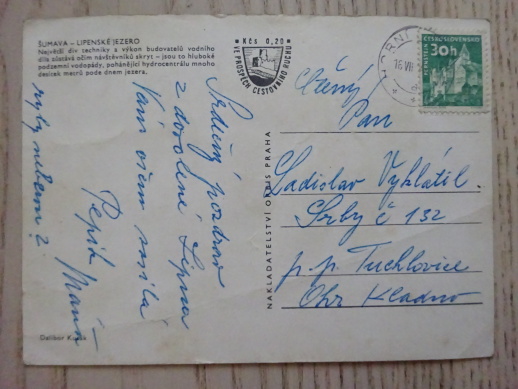 ŠUMAVA – LIPENSKÉ JEZERO
Největší div techniky a výkon budovatelů vodního
díla zůstává očím návštěvníků skryt – jsou to hluboké
podzemní vodopády, pohánějící hydrocentrálu mnoho
desítek metrů pode dnem jezera.
Srdečný pozdrav
z dovolené Lipna
Vám všem
ryby neberou
Pepík
Dalibor
NAKLADATELSTVÍ ORBIS PRAHA
Kčs 0,20
VE PROSPĚCH CESTOVNÍHO RUCHU
HORNÍ
ČESKOSLOVENSKO
30h
PERNŠTEJN
Ctěný
Pan
Ladislav Vyhlátil.
Srby č 132
p.p. Tuchlovice
Okr Kladno